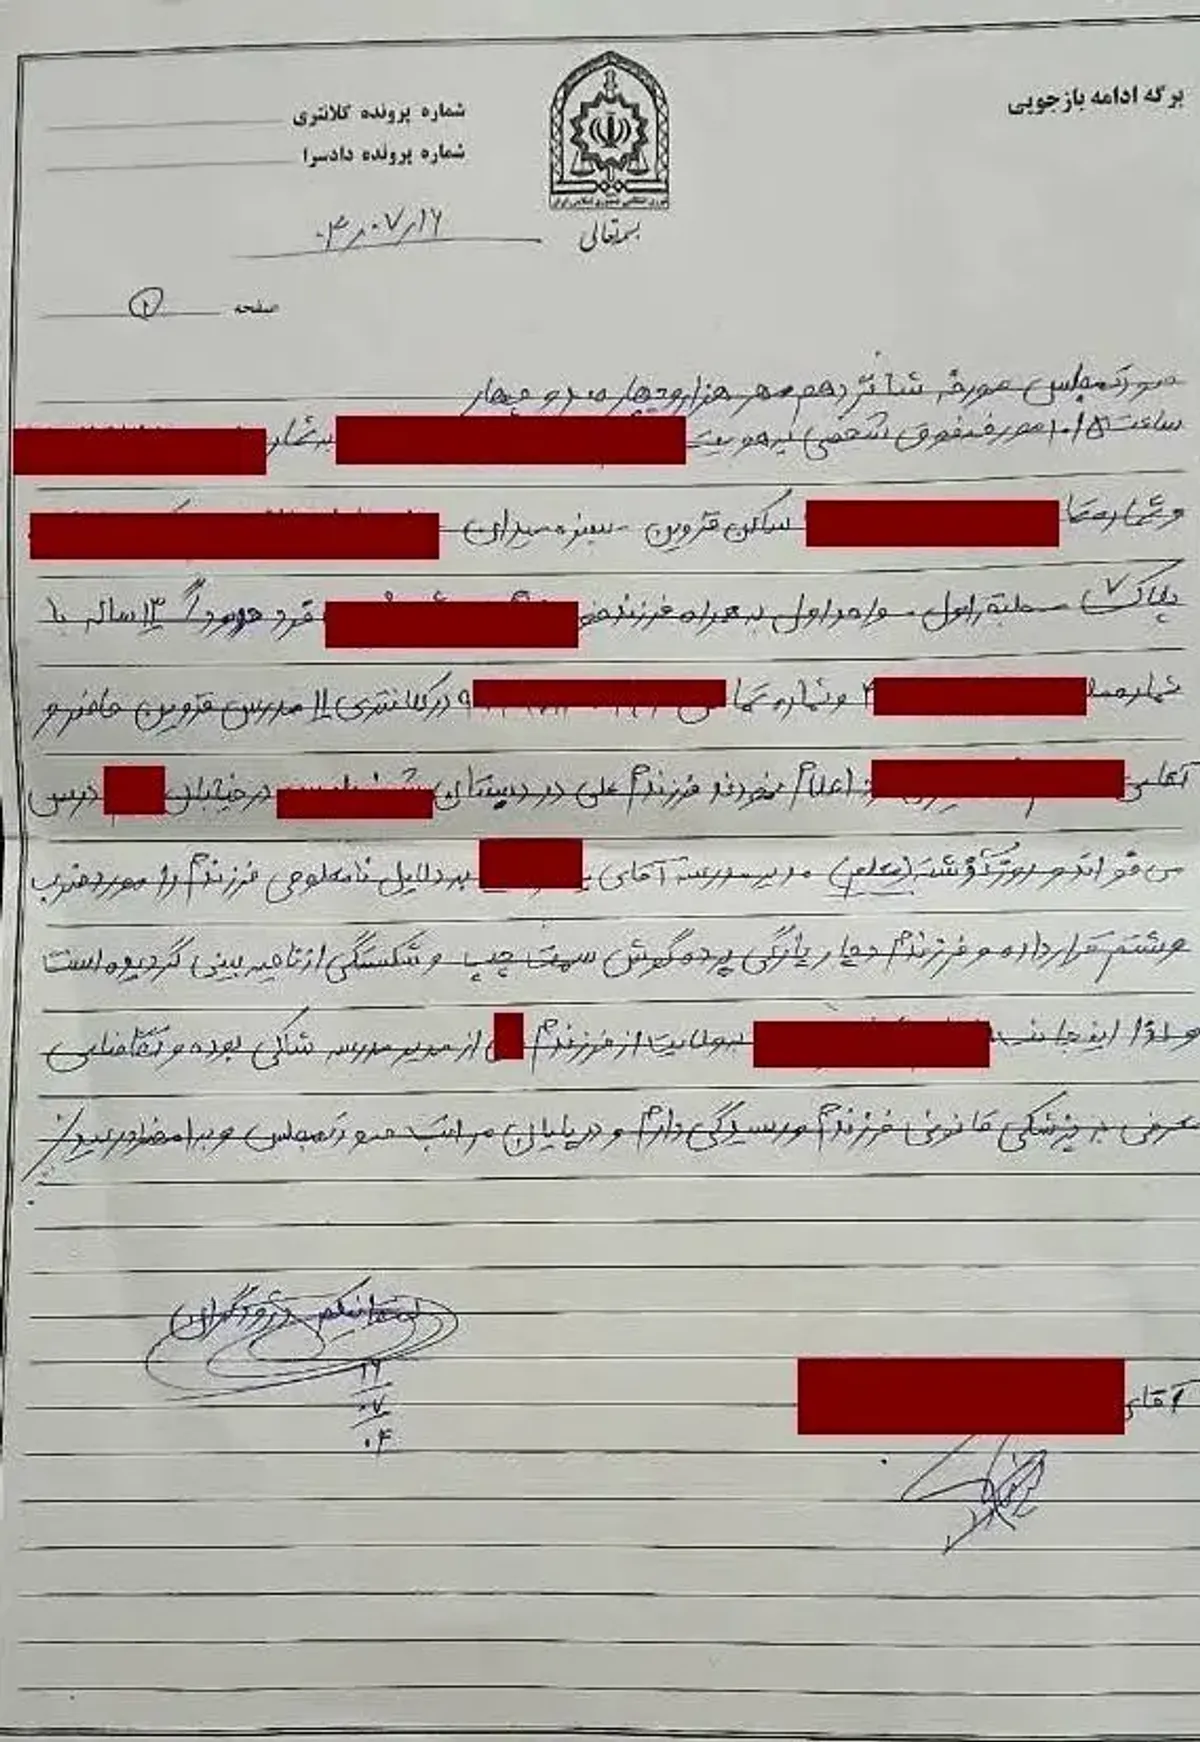 برگه ادامه بازجویی
شماره پرونده کلانتری
شماره پرونده دادسرا
نیروی انتظامی جمهوری اسلامی ایران
بسمه تعالی
۰۴/۰۷/۱۶
صفحه ۱
صورتمجلس مورخه شانزدهم مهر هزار و چهارصد و چهار
ساعت ۱۰/۵ مورخه فوق شخصی به هویت به شماره
و شماره تماس ساکن قزوین سبزه میدان
پلاک ۷ طبقه اول واحد اول به همراه فرزند خود ۱۳ ساله با
شماره ملی و شماره تماس در کلانتری ۱۱ مدرس قزوین حاضر و
آقای اعلام نمودند فرزندم علی در دبستان در خیابان درس
می خواند و روز گذشته (معلم) مدیر مدرسه آقای به دلایل نامعلومی فرزندم را مورد ضرب
و شتم قرار داده و فرزندم دچار پارگی پرده گوش سمت چپ و شکستگی از ناحیه بینی گردیده است
و لذا اینجانب به ولایت از فرزندم از مدیر مدرسه شاکی بوده و تقاضای
معرفی به پزشکی قانونی فرزندم و رسیدگی دارم و در پایان مراتب صورتمجلس و به امضا رسید
۱۶
۰۷
۰۴
آقای